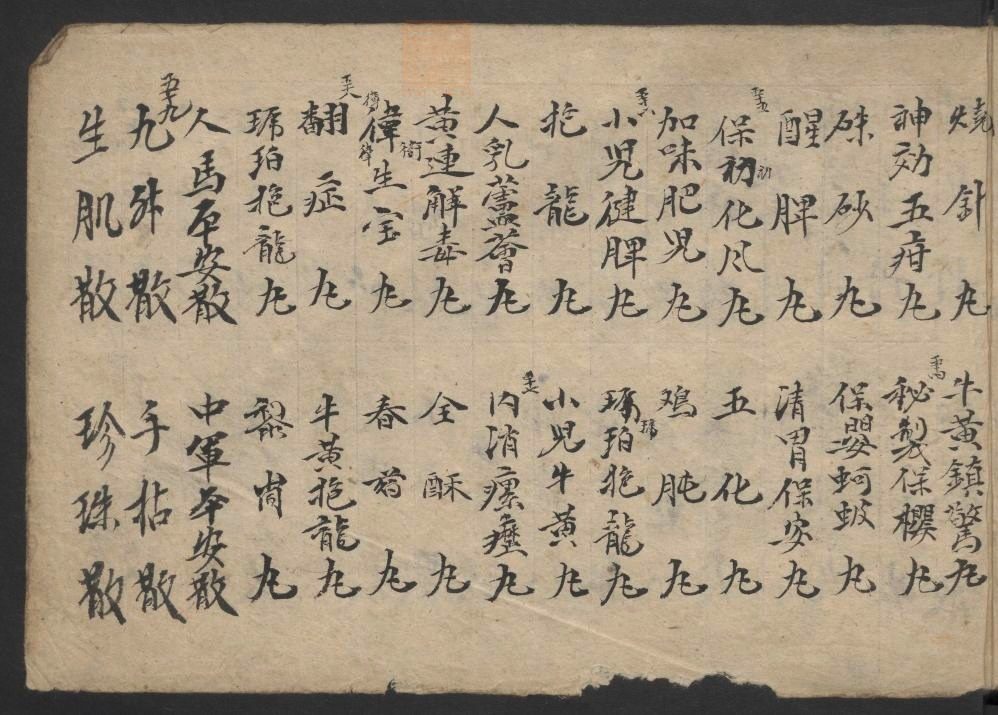 燒針丸
神効五疳丸
硃砂丸
醒脾丸
保初化风丸
加味肥児丸
小児健脾丸
抱龍丸
人乳蘆薈丸
黄連解毒丸
偉生宝丸
翻症丸
琥珀抱龍丸
人馬平安散
五九
九外散
生肌散
牛黄鎮驚丸
秘製保櫻丸
保嬰蚵蚾丸
清胃保安丸
五化丸
鸡肫丸
琥珀抱龍丸
小児牛黄丸
内消瘰癧丸
全酥丸
春药丸
牛黄抱龍丸
中軍平安散
手拈散
珍珠散